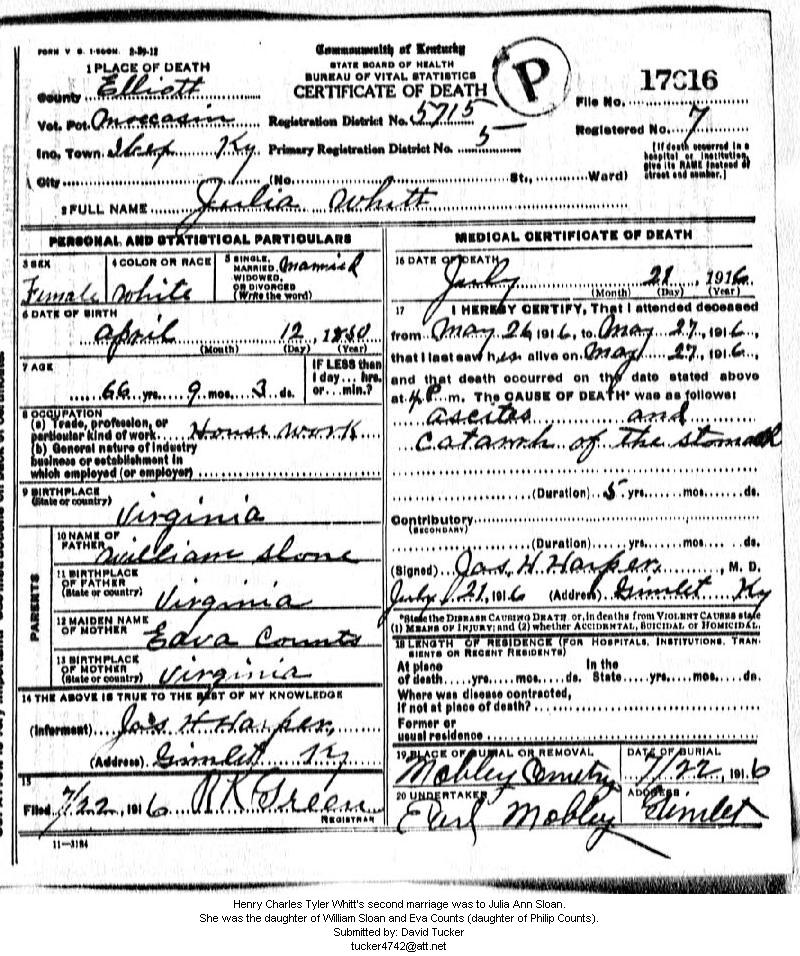 FORM V. S. 1-500M. 2-29-12
Commonwealth of Kentucky
STATE BOARD OF HEALTH
BUREAU OF VITAL STATISTICS
CERTIFICATE OF DEATH
P
1 PLACE OF DEATH
County Elliott
Vot. Pct. Moccasin
Inc. Town Ibex Ky.
City (No. St., Ward)
Registration District No. 5715
Primary Registration District No. 5
File No. 17816
Registered No. 7
[If death occurred in a hospital or institution, give its NAME instead of street and number.]
2 FULL NAME Julia Whitt
PERSONAL AND STATISTICAL PARTICULARS
3 SEX Female
4 COLOR OR RACE White
5 SINGLE, MARRIED, WIDOWED, OR DIVORCED (Write the word) Married
6 DATE OF BIRTH
April 12, 1850
(Month) (Day) (Year)
7 AGE
66 yrs. 9 mos. 3 ds.
IF LESS than 1 day... hrs. or... min.?
8 OCCUPATION
(a) Trade, profession, or
particular kind of work House work
(b) General nature of industry
business or establishment in
which employed (or employer)
9 BIRTHPLACE
(State or country) Virginia
PARENTS
10 NAME OF FATHER William Slone
11 BIRTHPLACE OF FATHER (State or country) Virginia
12 MAIDEN NAME OF MOTHER Eava Counts
13 BIRTHPLACE OF MOTHER (State or country) Virginia
14 THE ABOVE IS TRUE TO THE BEST OF MY KNOWLEDGE
(Informant) Jas H Harper,
(Address) Gimlet Ky
15
Filed 7/22, 1916 R K Green
REGISTRAR
11-3184
MEDICAL CERTIFICATE OF DEATH
16 DATE OF DEATH
July 21, 1916
(Month) (Day) (Year)
17 I HEREBY CERTIFY, That I attended deceased
from May 26, 1916, to May 27, 1916,
that I last saw her alive on May 27, 1916,
and that death occurred on the date stated above
at 4 P. m. The CAUSE OF DEATH* was as follows:
ascites and
Catarrh of the stomach
(Duration) 5 yrs. mos. ds.
Contributory
(SECONDARY)
(Duration) yrs. mos. ds.
(Signed) Jas. H. Harper, M. D.
July 21, 1916 (Address) Gimlet Ky
*State the DISEASE CAUSING DEATH, or, in deaths from VIOLENT CAUSES state
(1) MEANS OF INJURY; and (2) whether ACCIDENTAL, SUICIDAL or HOMICIDAL.
18 LENGTH OF RESIDENCE (FOR HOSPITALS, INSTITUTIONS, TRAN-
SIENTS OR RECENT RESIDENTS)
At place of death yrs. mos. ds. In the State yrs. mos. ds.
Where was disease contracted,
If not at place of death?
Former or
usual residence
19 PLACE OF BURIAL OR REMOVAL Mobley Cemetry
DATE OF BURIAL 7/22, 1916
20 UNDERTAKER Earl Mobley
ADDRESS Gimlet
Henry Charles Tyler Whitt's second marriage was to Julia Ann Sloan.
She was the daughter of William Sloan and Eva Counts (daughter of Philip Counts).
Submitted by: David Tucker
tucker4742@att.net